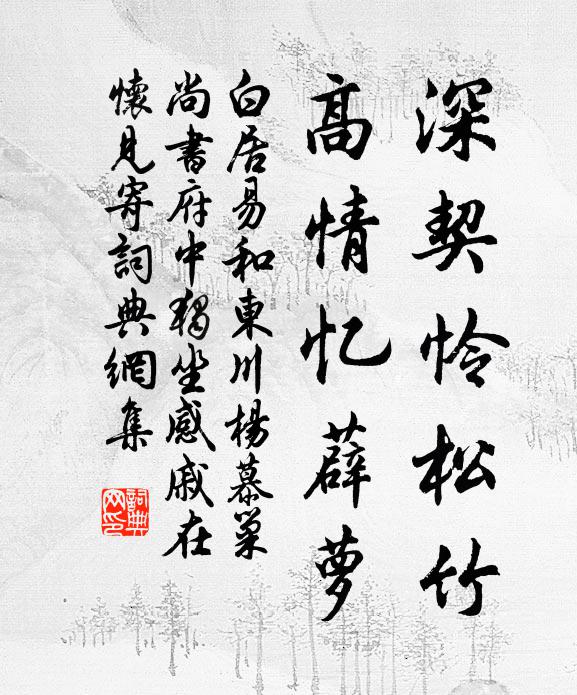 深契怜松竹
高情忆薜萝
白居易和東川楊慕巢
尚書府中獨坐感戚在
懷見寄詞典網集
詞典
网印